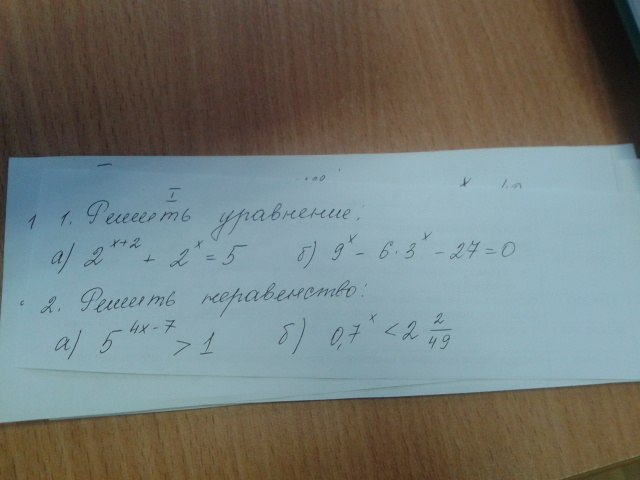 I
1. Решить уравнение:
а) 2^{x+2} + 2^x = 5 б) 9^x - 6·3^x - 27 = 0
2. Решить неравенство:
а) 5^{4x-7} > 1 б) 0,7^x < 2 2/49